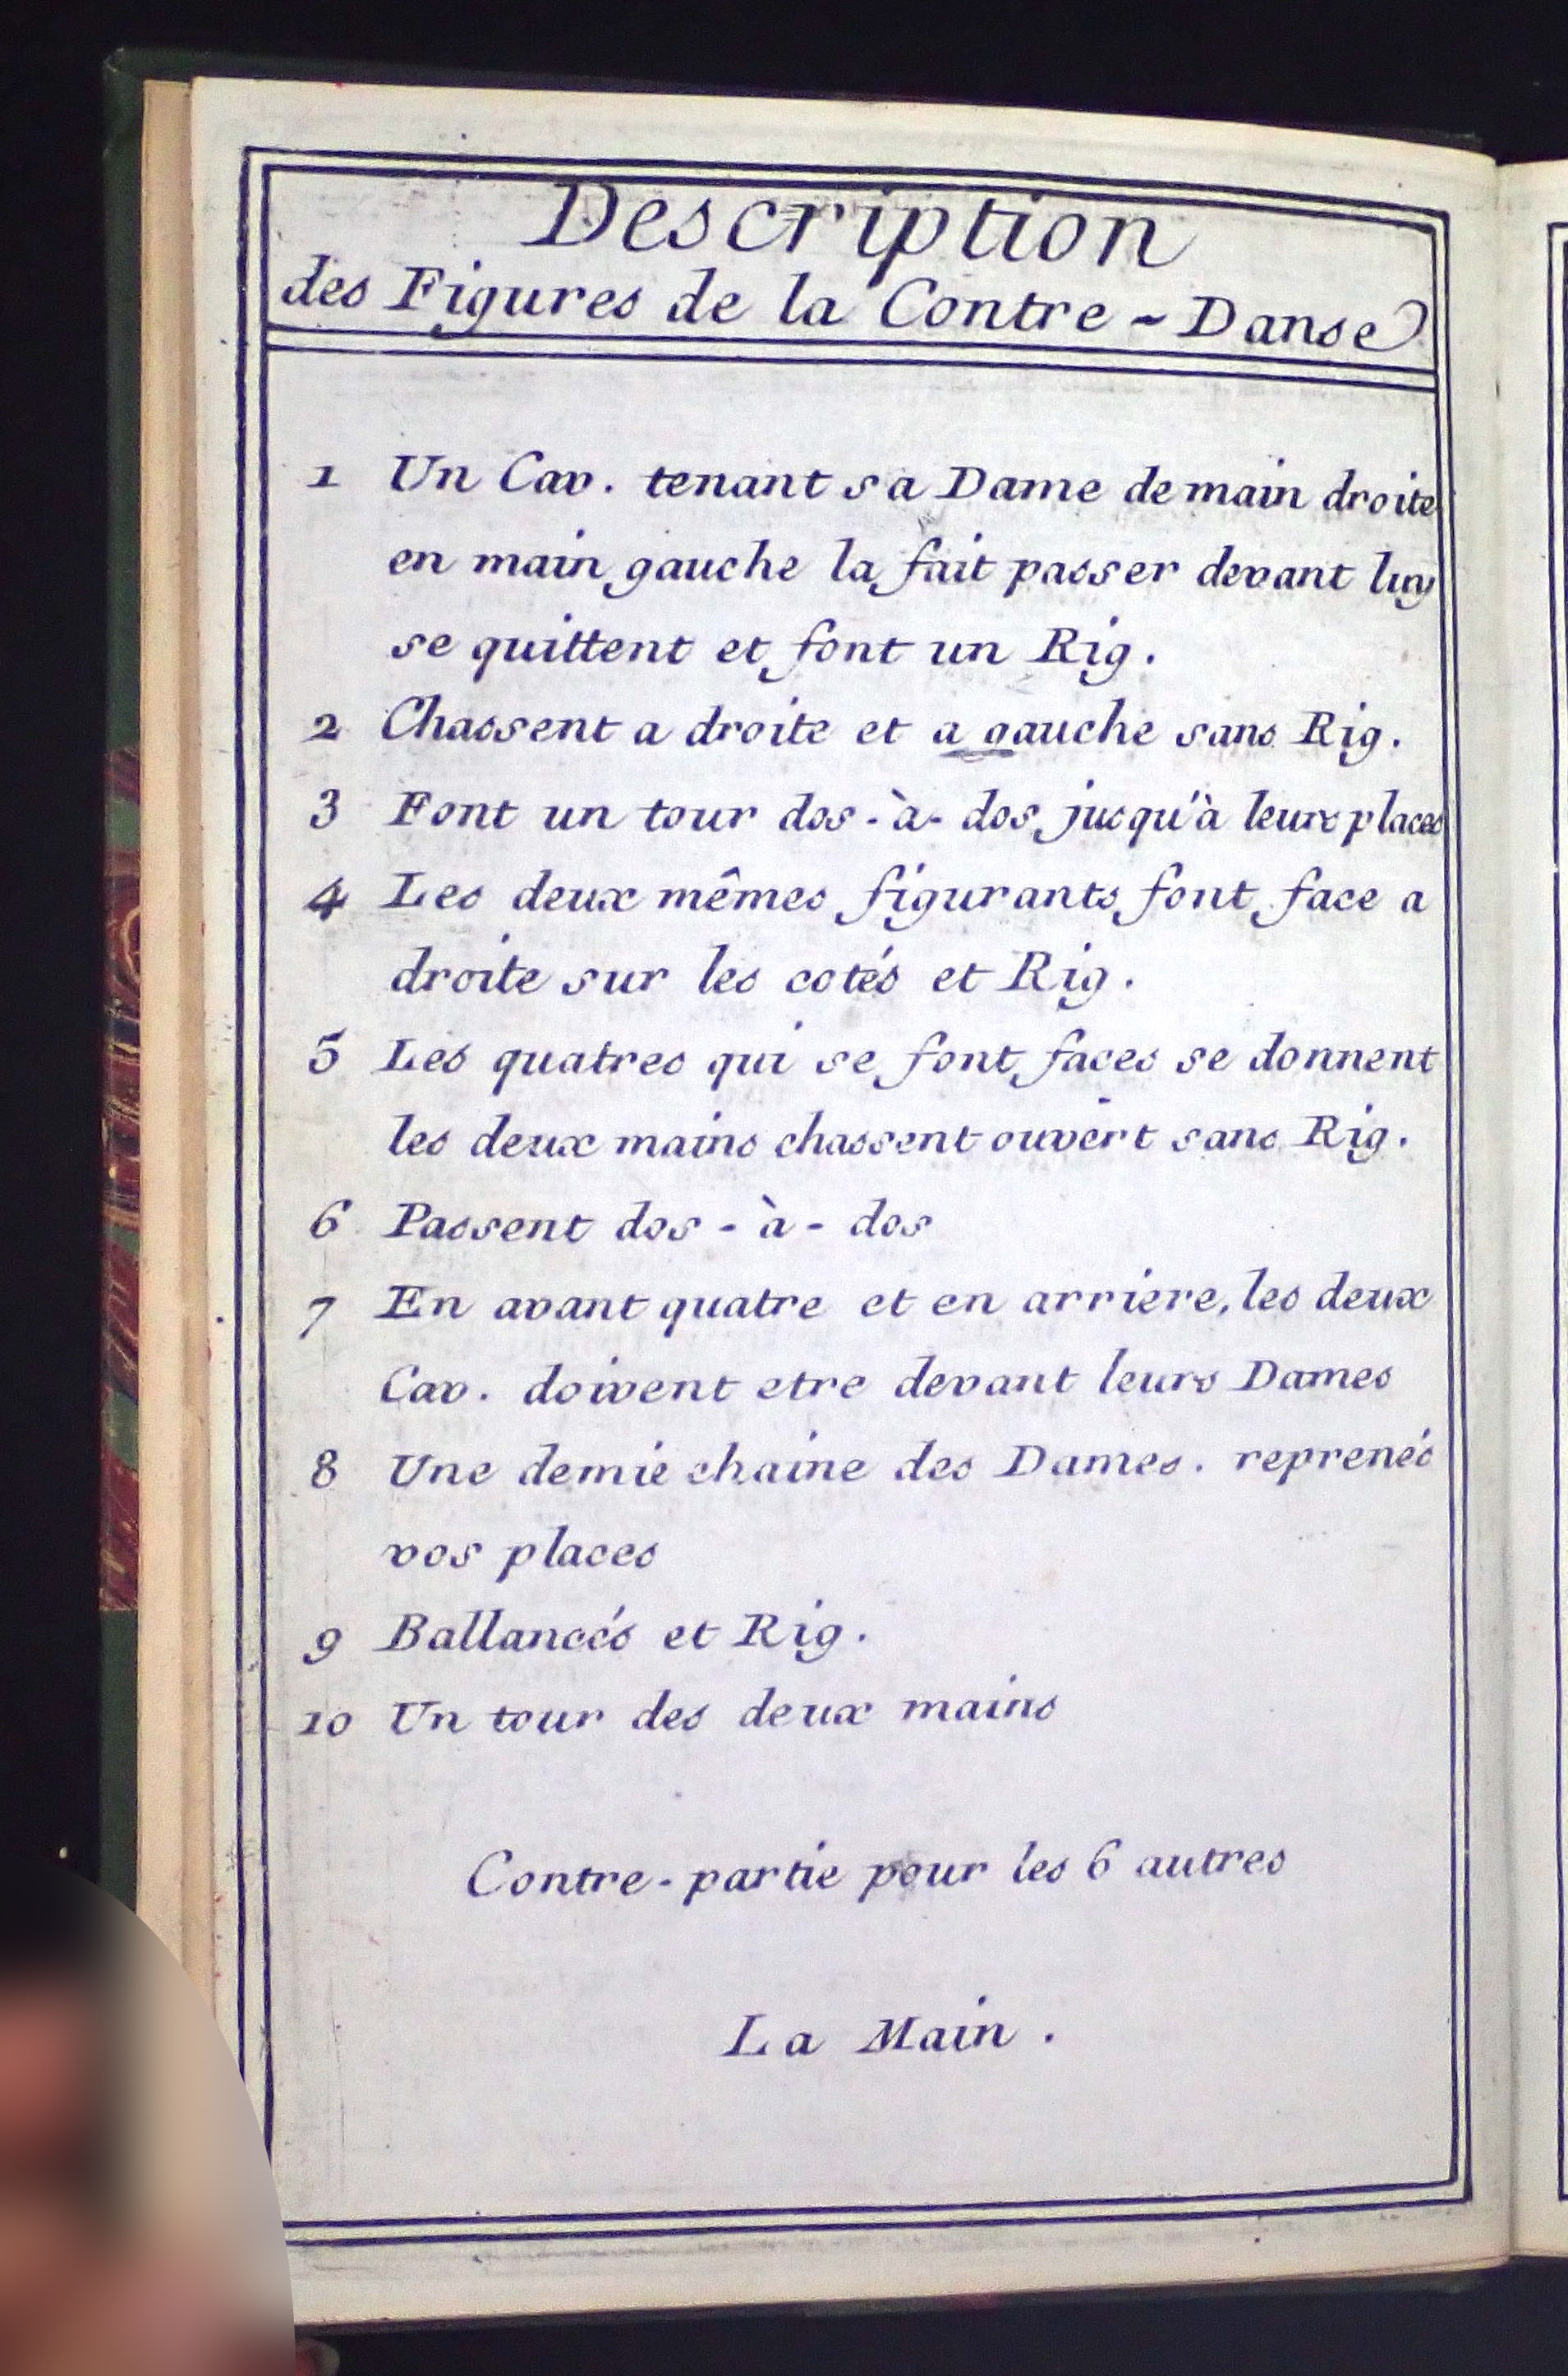 Description
des Figures de la Contre-Danse
1 Un Cav. tenant sa Dame de main droite
en main gauche la fait passer devant luy
se quittent et font un Rig.
2 Chassent a droite et a gauche sans Rig.
3 Font un tour dos-à-dos jusqu'à leurs places
4 Les deux mêmes figurants font face a
droite sur les cotés et Rig.
5 Les quatres qui se font faces se donnent
les deux mains chassent ouvert sans Rig.
6 Passent dos-à-dos
7 En avant quatre et en arriere, les deux
Cav. doivent etre devant leurs Dames
8 Une demie chaine des Dames. reprenés
vos places
9 Ballancés et Rig.
10 Un tour des deux mains
Contre-partie pour les 6 autres
La Main.